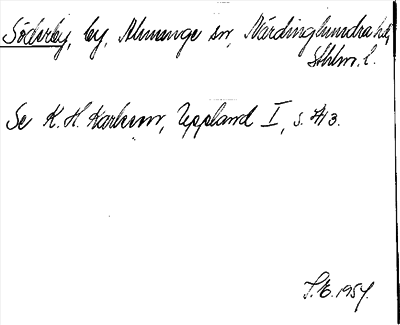 Söderby, by, Almunge sn, Närdinghundra hd,
Sthlm. l.
Se K. H. Karlsson, Uppland I, s. 413.
S.E. 1957.